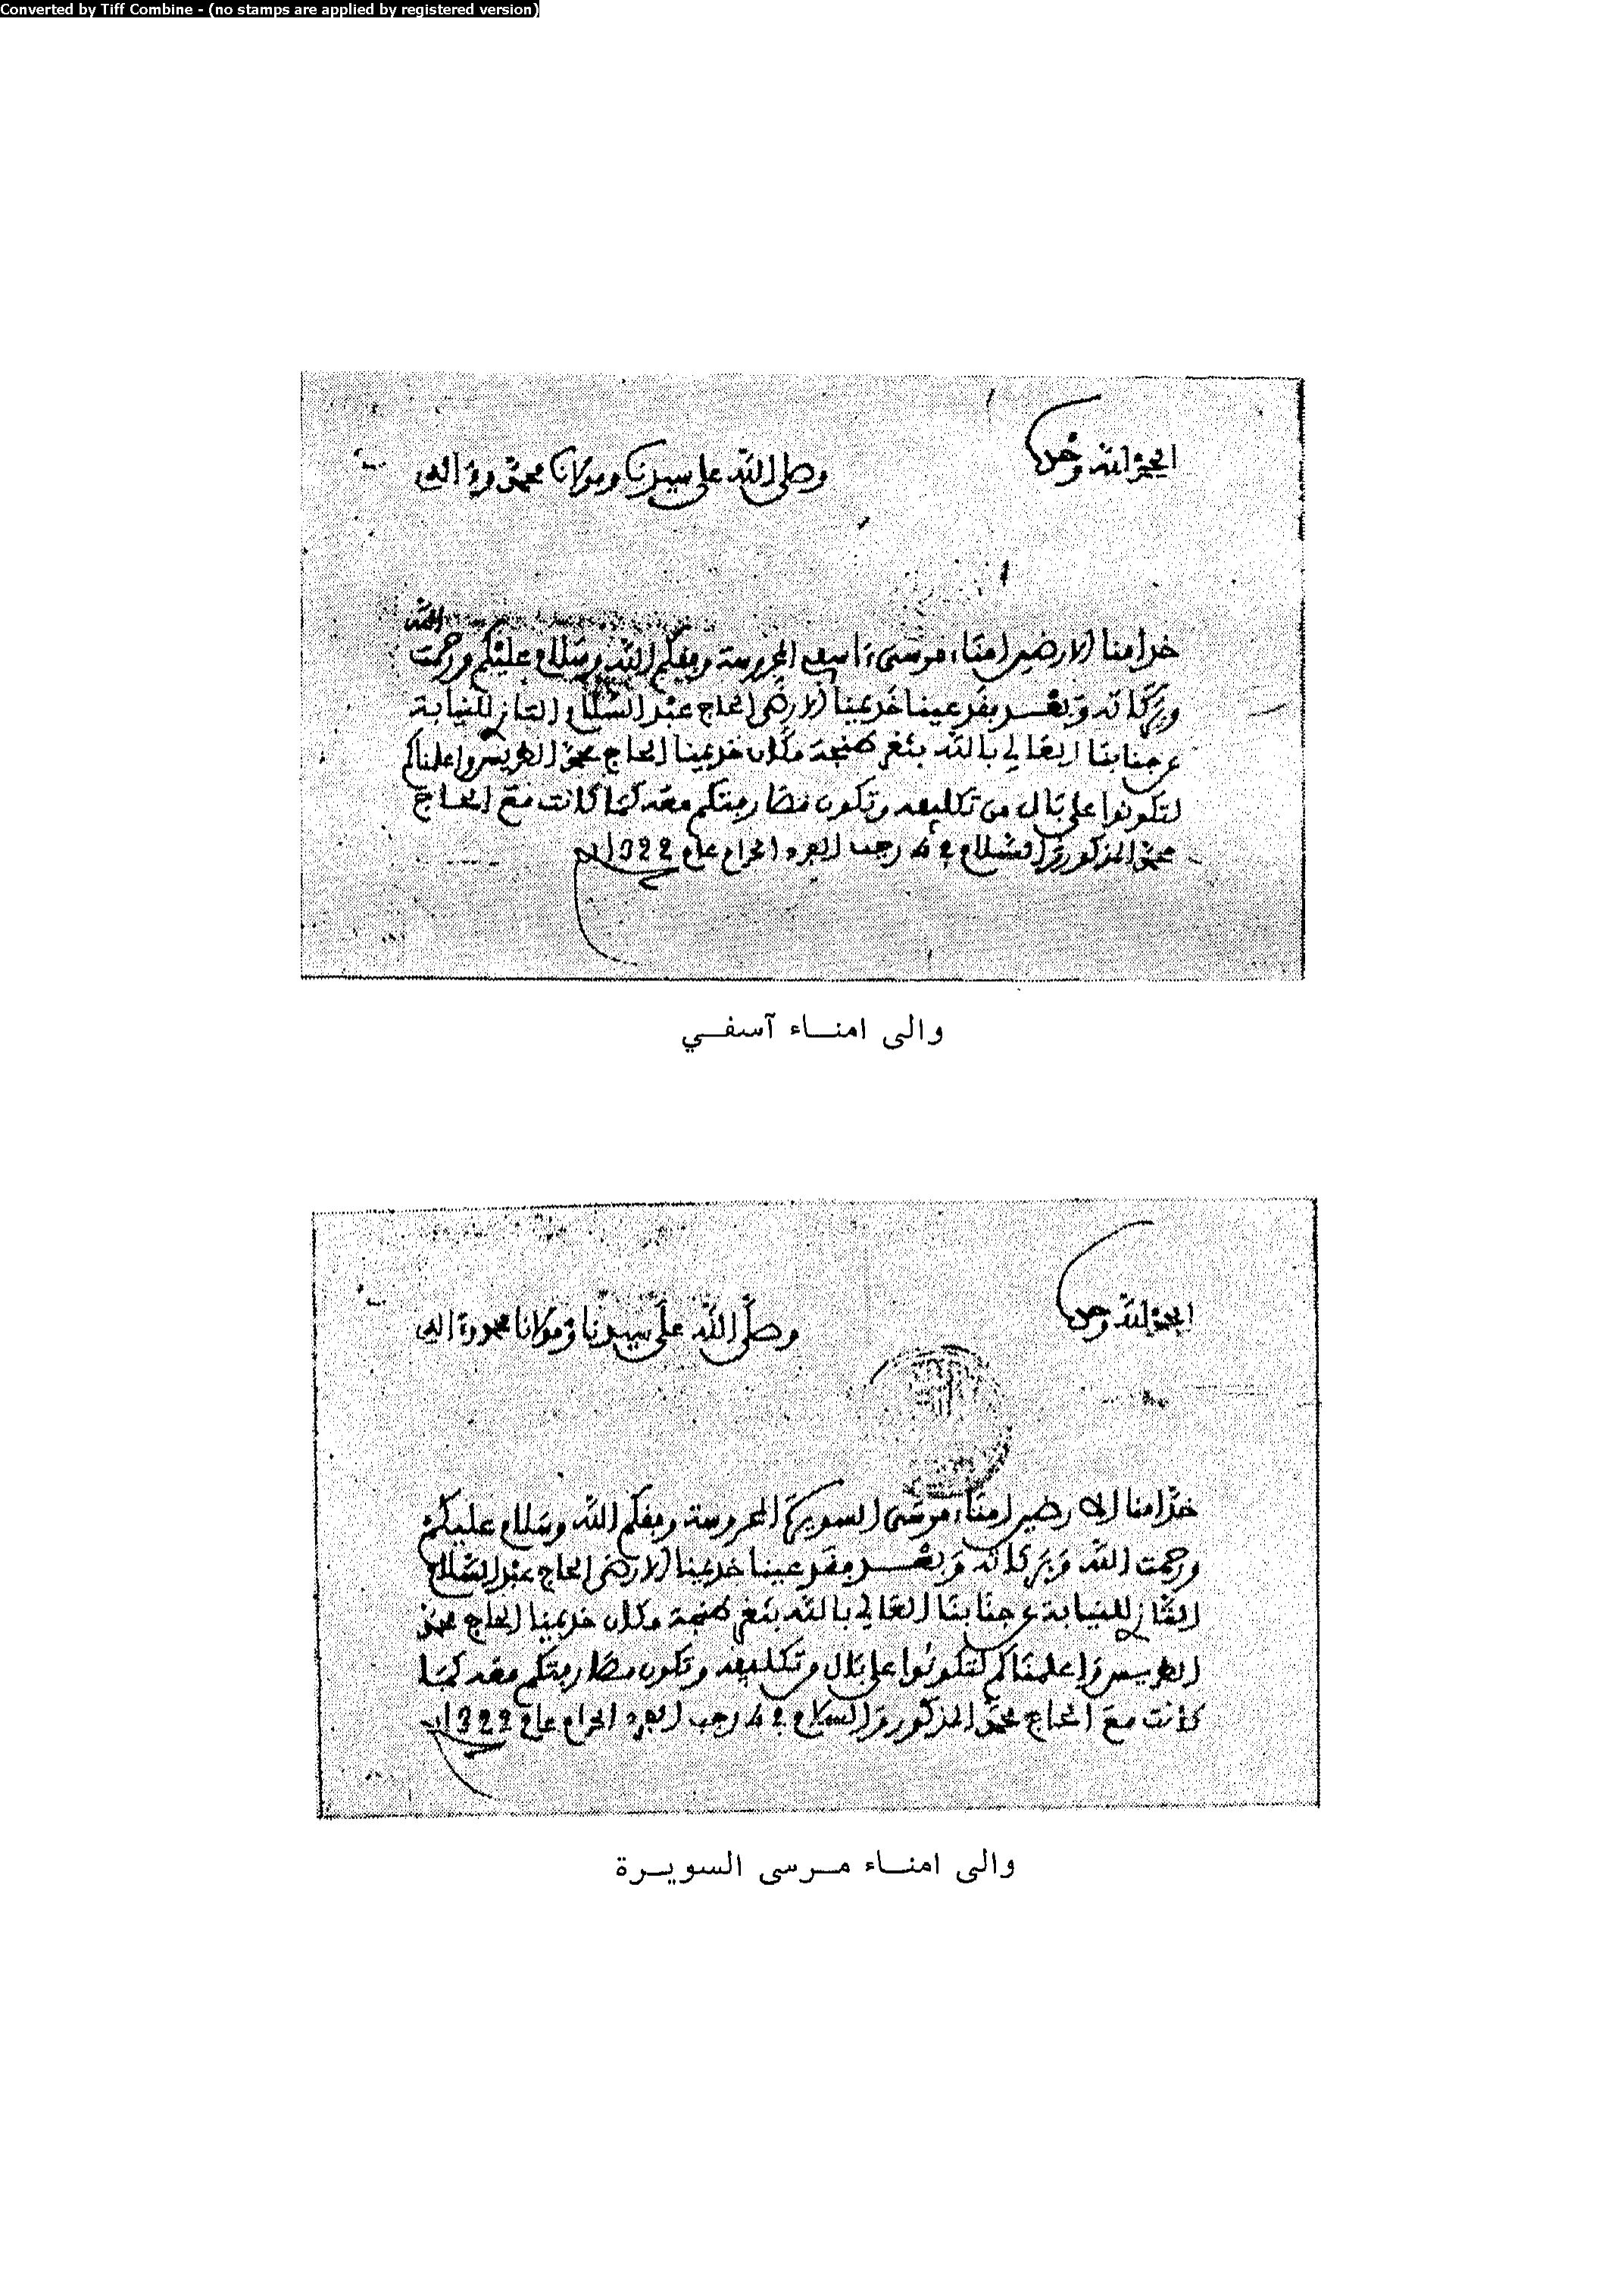 Converted by Tiff Combine - (no stamps are applied by registered version)
الحمد لله وحده
وصلى الله على سيدنا ومولانا محمد وءاله
خدامنا الارضين امناء مرسى ءاسفي المحروسة وفقكم الله وسلام عليكم ورحمت الله
وبركاته وبعد فقد عينا خديمنا الارضى الحاج عبد السلام التازي للنيابة
عن جنابنا العالي بالله بثغر طنجة مكان خديمنا الحاج محمد الطريس واعلمناكم
لتكونوا على بال من تكليفه وتكون مخارمتكم معه كما كانت مع الحاج
محمد المذكور والسلام في 4 رجب الفرد الحرام عام 1322
والى امناء آسفي
الحمد لله وحده
وصلى الله على سيدنا ومولانا محمد وءاله
خدامنا الارضين امناء مرسى السويرة المحروسة وفقكم الله وسلام عليكم
ورحمت الله وبركاته وبعد فقد عينا خديمنا الارضى الحاج عبد السلام
التازي للنيابة عن جنابنا العالي بالله بثغر طنجة مكان خديمنا الحاج محمد
الطريس واعلمناكم لتكونوا على بال من تكليفه وتكون معه كما
كانت مع الحاج محمد المذكور والسلام في 4 رجب الفرد الحرام عام 1322
والى امناء مرسى السويرة